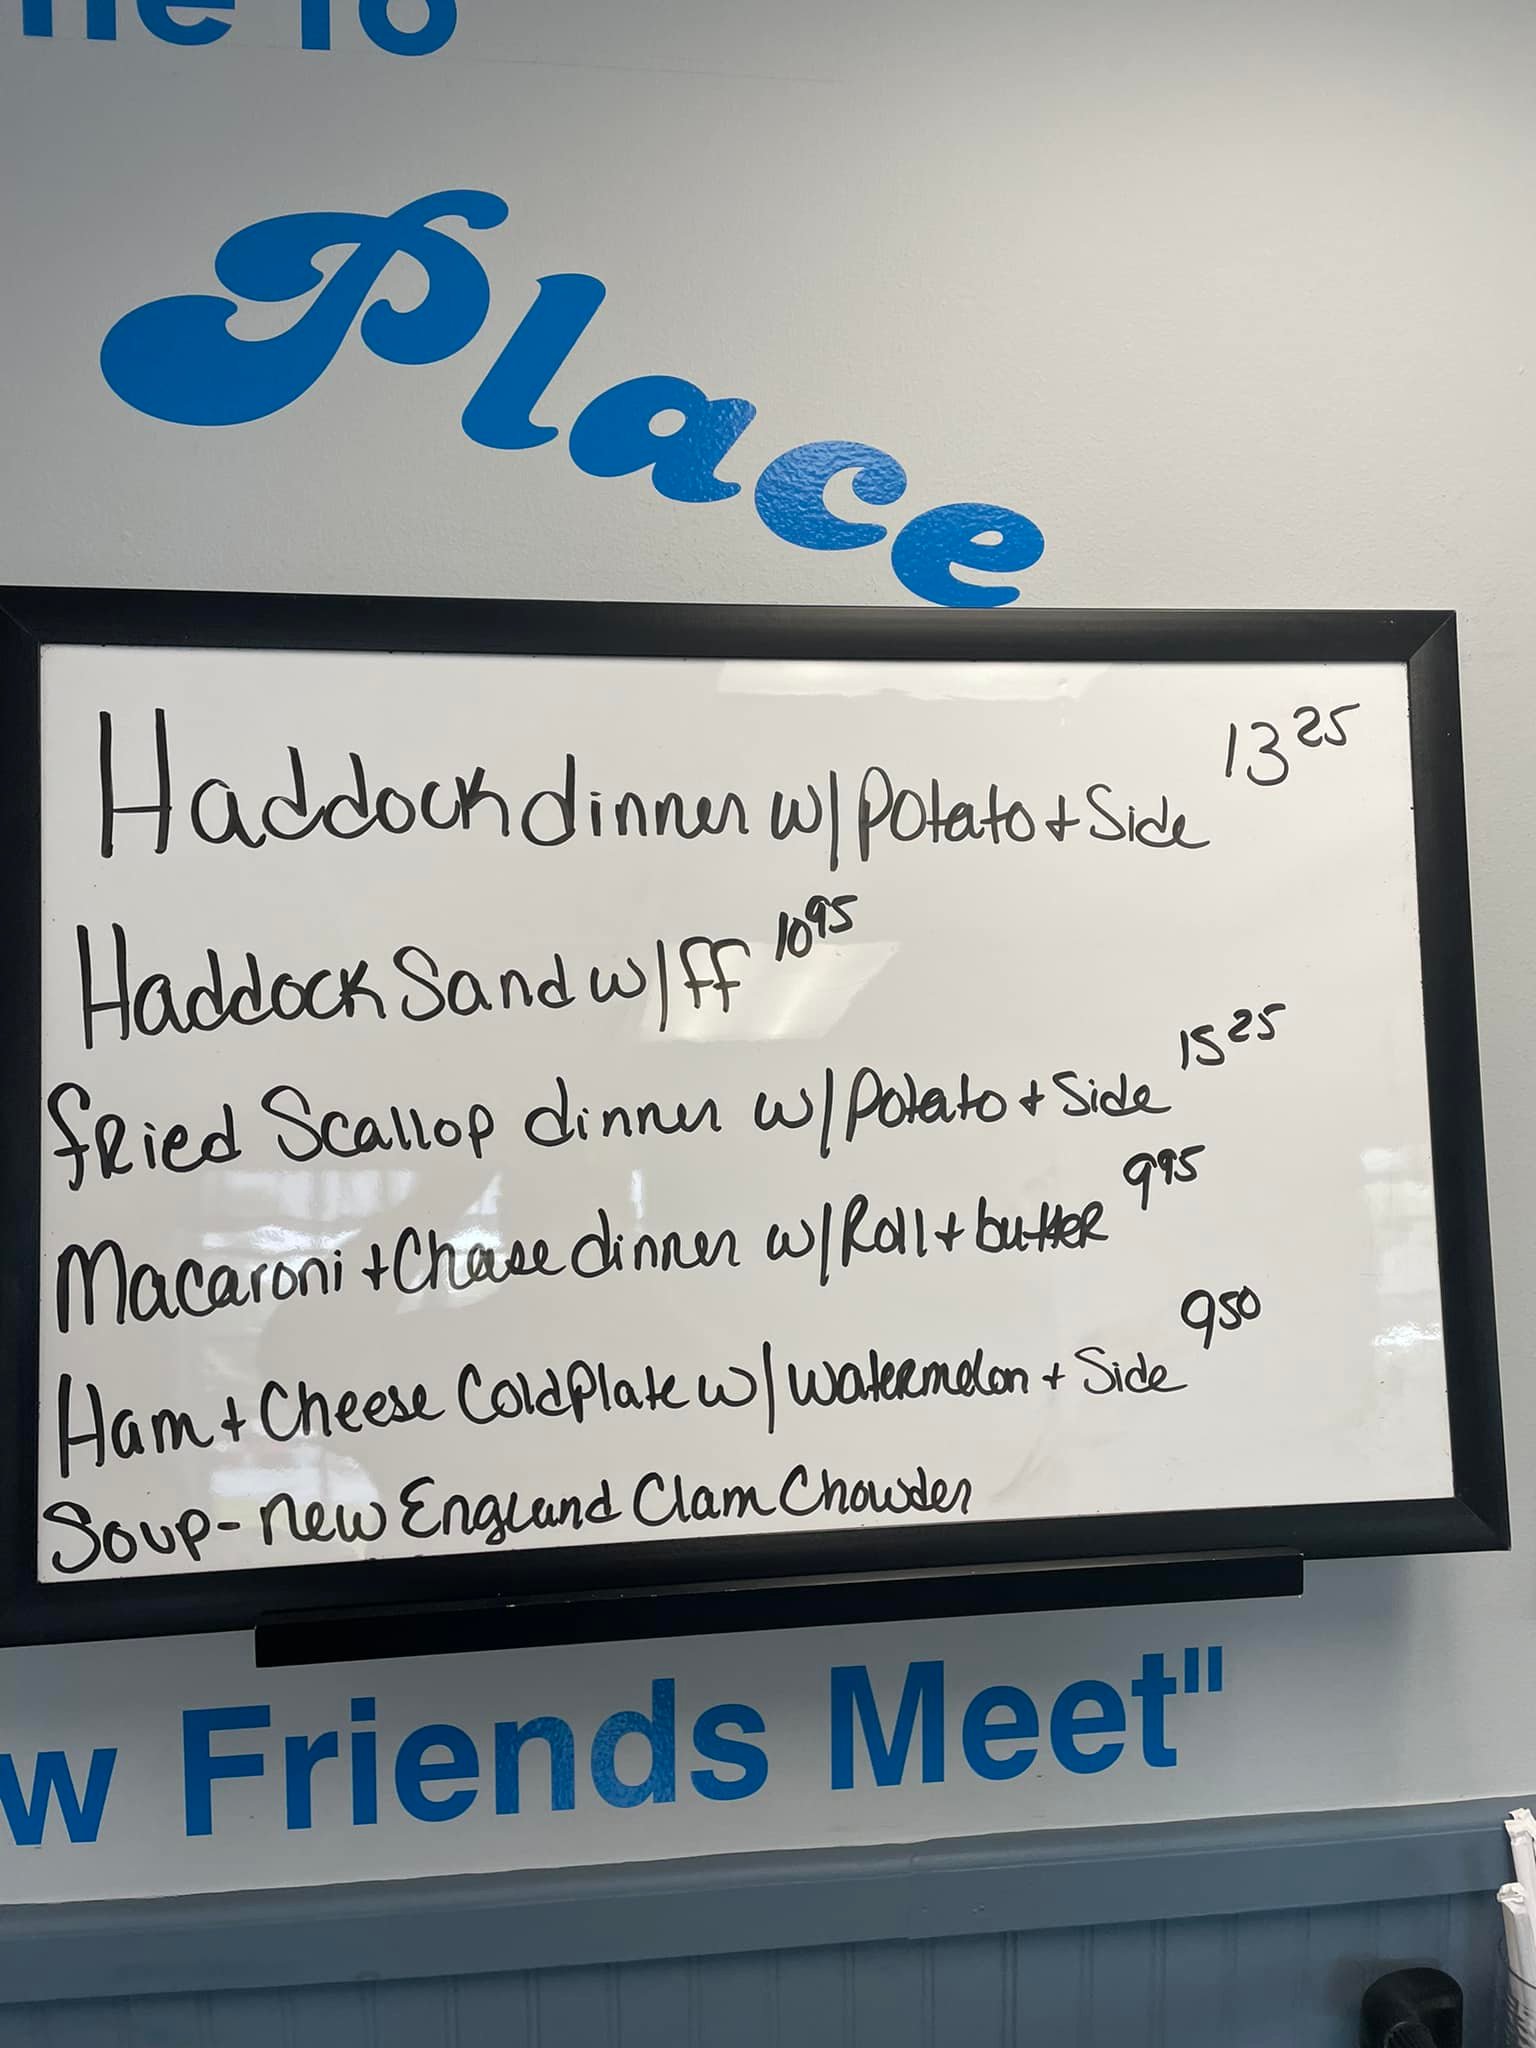 me To
Place
Haddock dinner w/Potato + Side 13 25
Haddock Sand w/ff 10 95
fried Scallop dinner w/Potato + Side 15 25
Macaroni + Chase dinner w/Roll + butter 9 95
Ham + Cheese Cold Plate w/watermelon + Side 9 50
Soup - new England Clam Chowder
w Friends Meet"